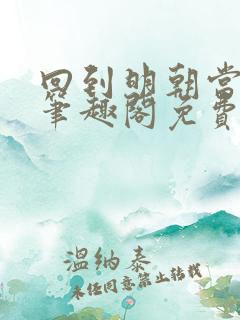 回到明朝当
笔趣阁免费
温纳泰
未经同意禁止转载